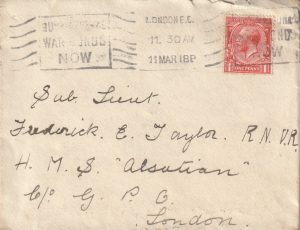 WAR BONDS
NOW
LONDON E.C.
11. 30 AM
11 MAR 18
ONE PENNY
Sub. Lieut.
Frederick. E. Taylor. R. N. V. R.
H. M. S. "Alsatian"
C/o G. P. O.
London.